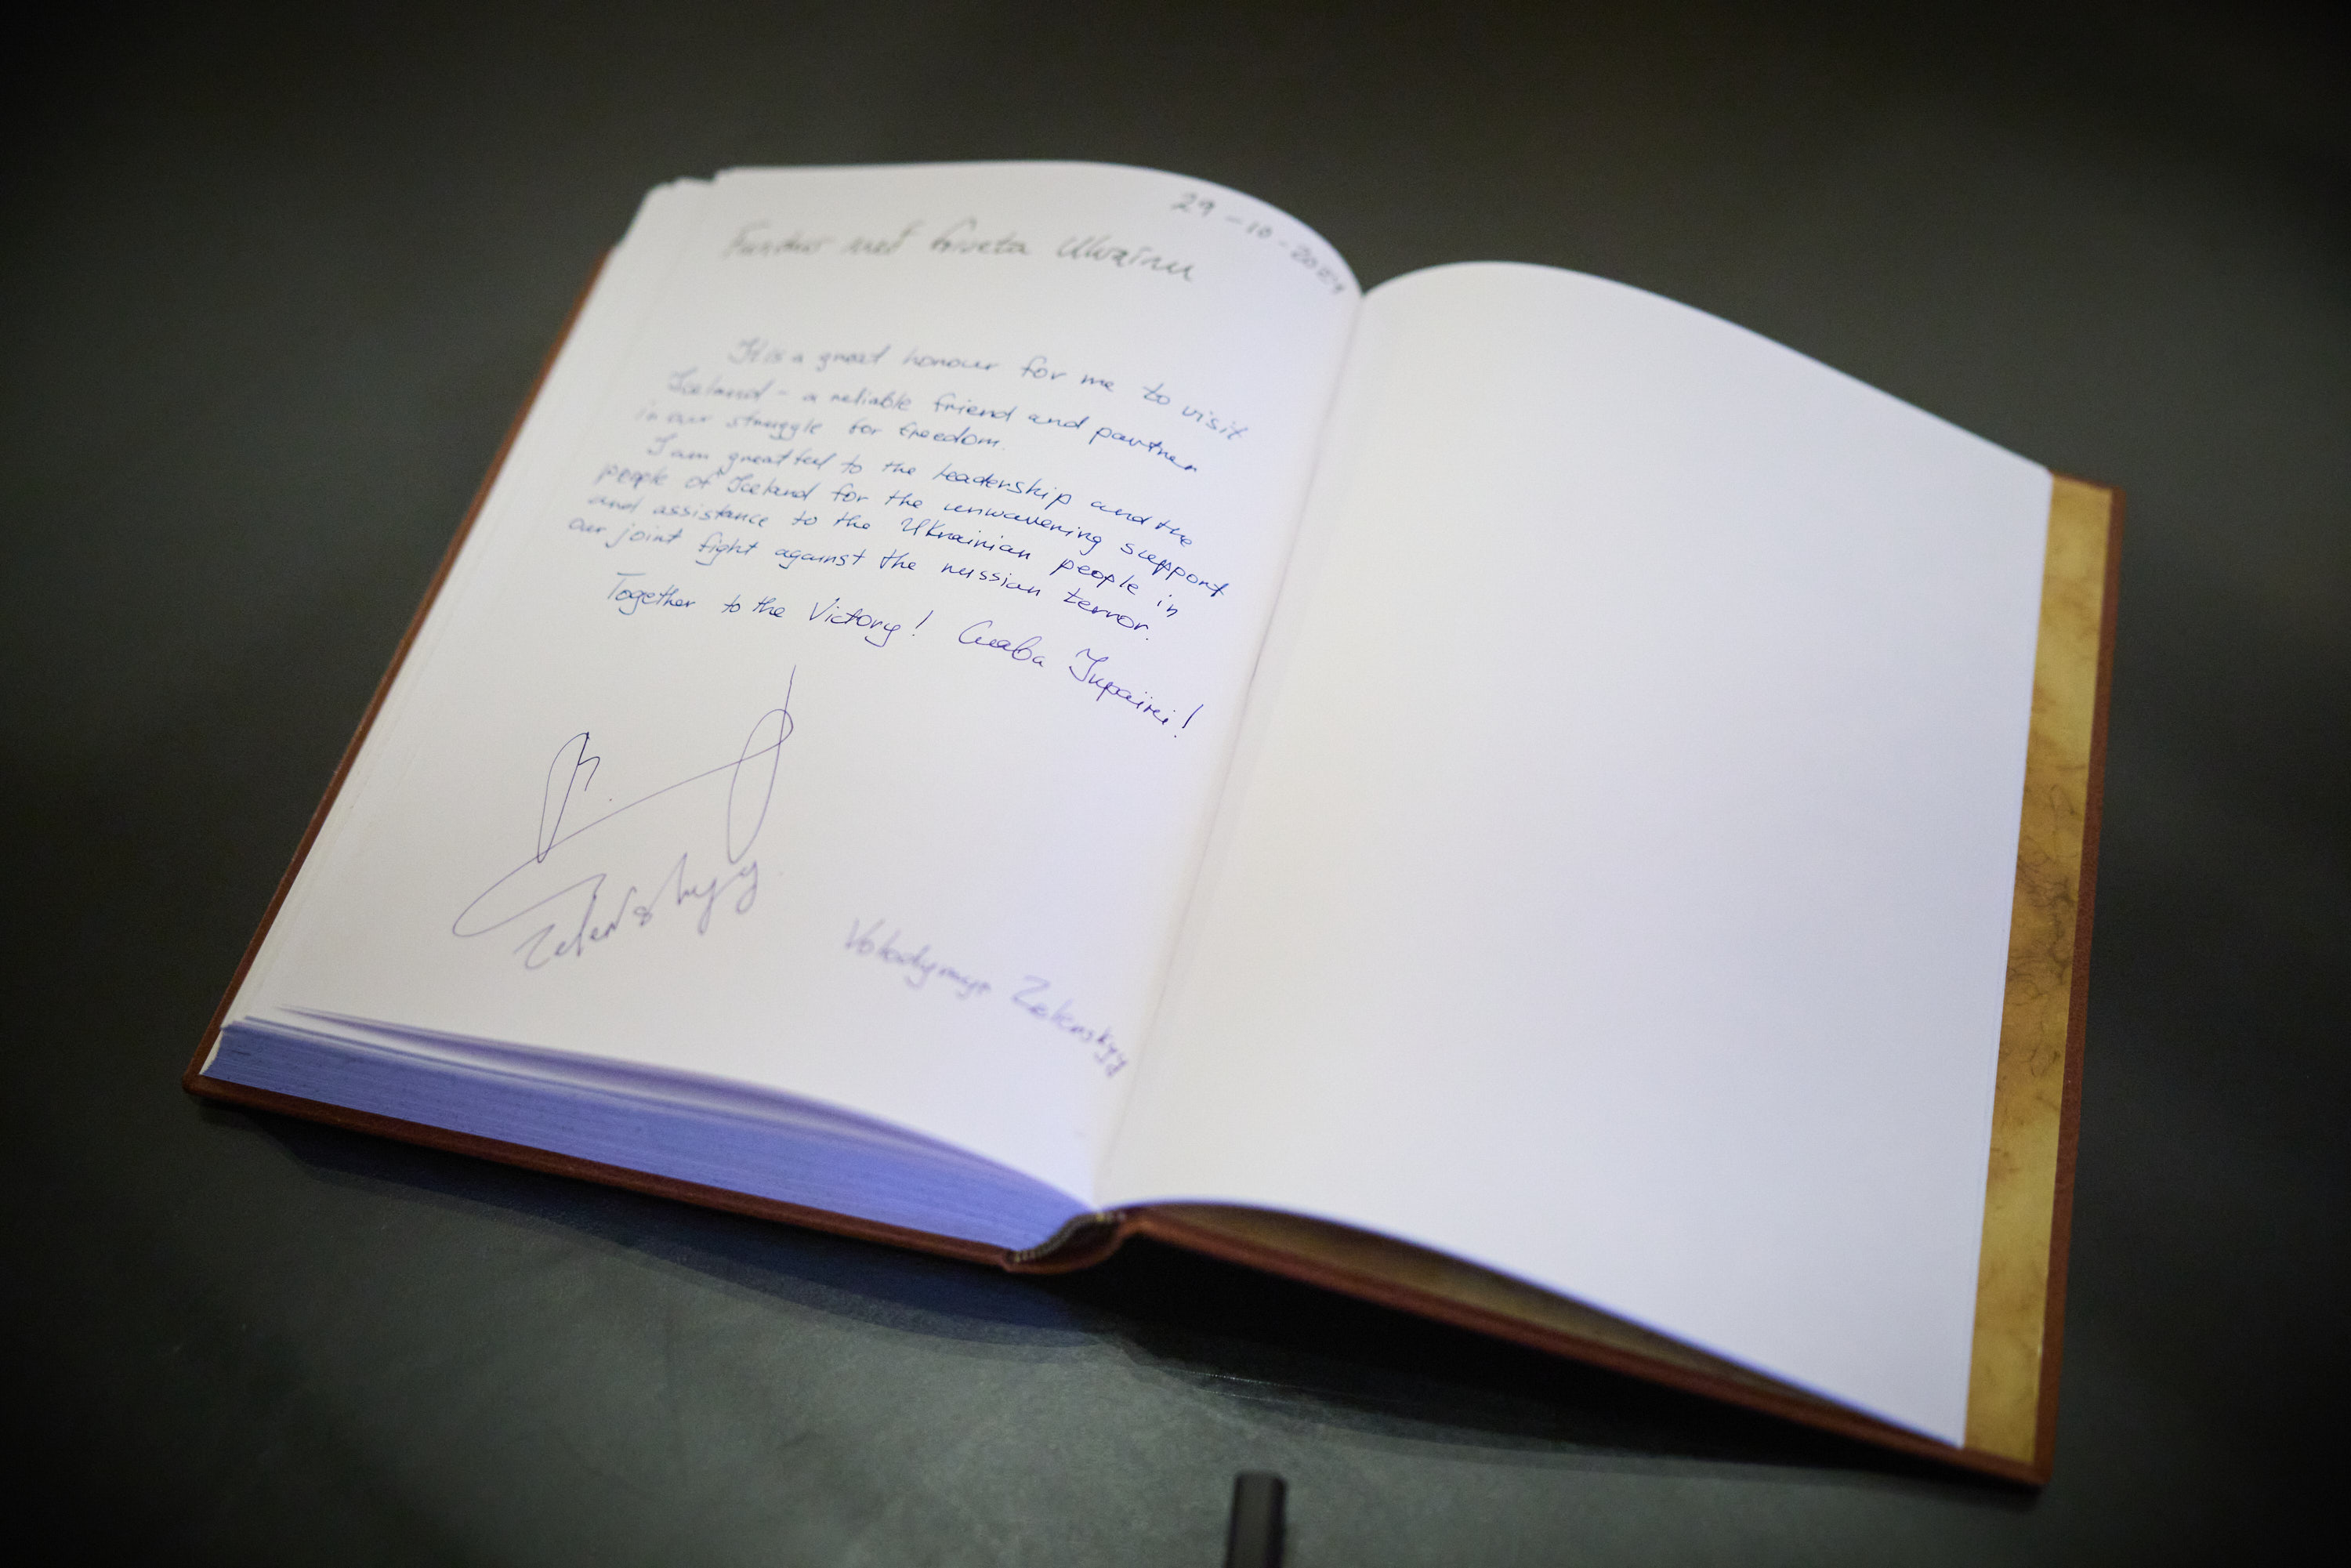 29-10-2024
Fundur með forseta Ukraínu
It is a great honour for me to visit
Iceland - a reliable friend and partner
in our struggle for freedom.
I am greatful to the leadership and the
people of Iceland for the unwavering support
and assistance to the Ukrainian people in
our joint fight against the russian terror.
Together to the Victory! Слава Україні!
Zelenskyy
Volodymyr Zelenskyy